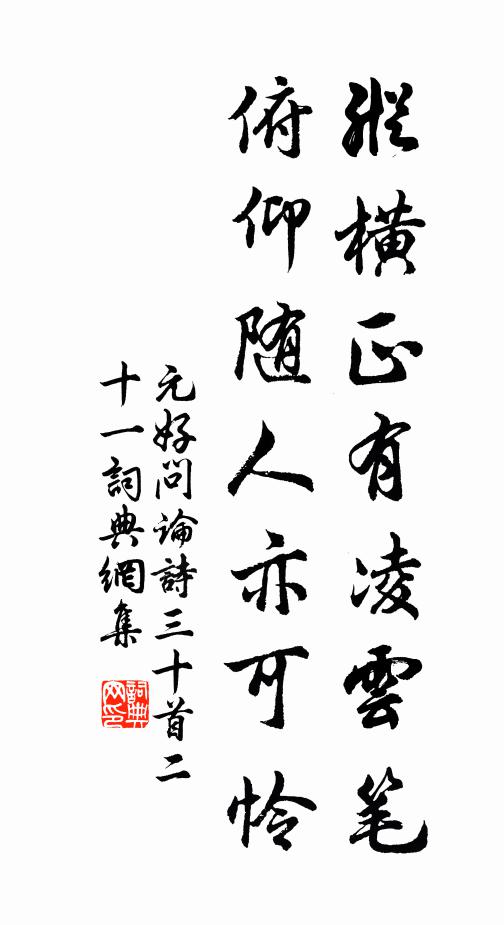 縱橫正有凌雲笔
俯仰随人亦可怜
元好问论詩三十首二
十一詞典網集
詞典网印